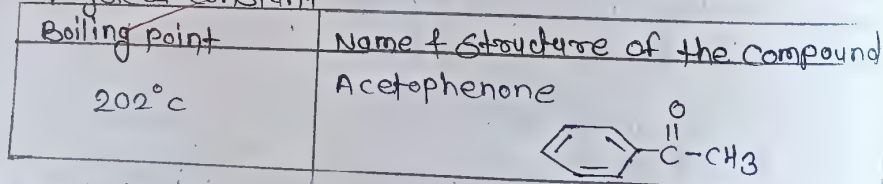 Boiling point
Name & Structure of the Compound
202°C
Acetophenone
O
C-CH3